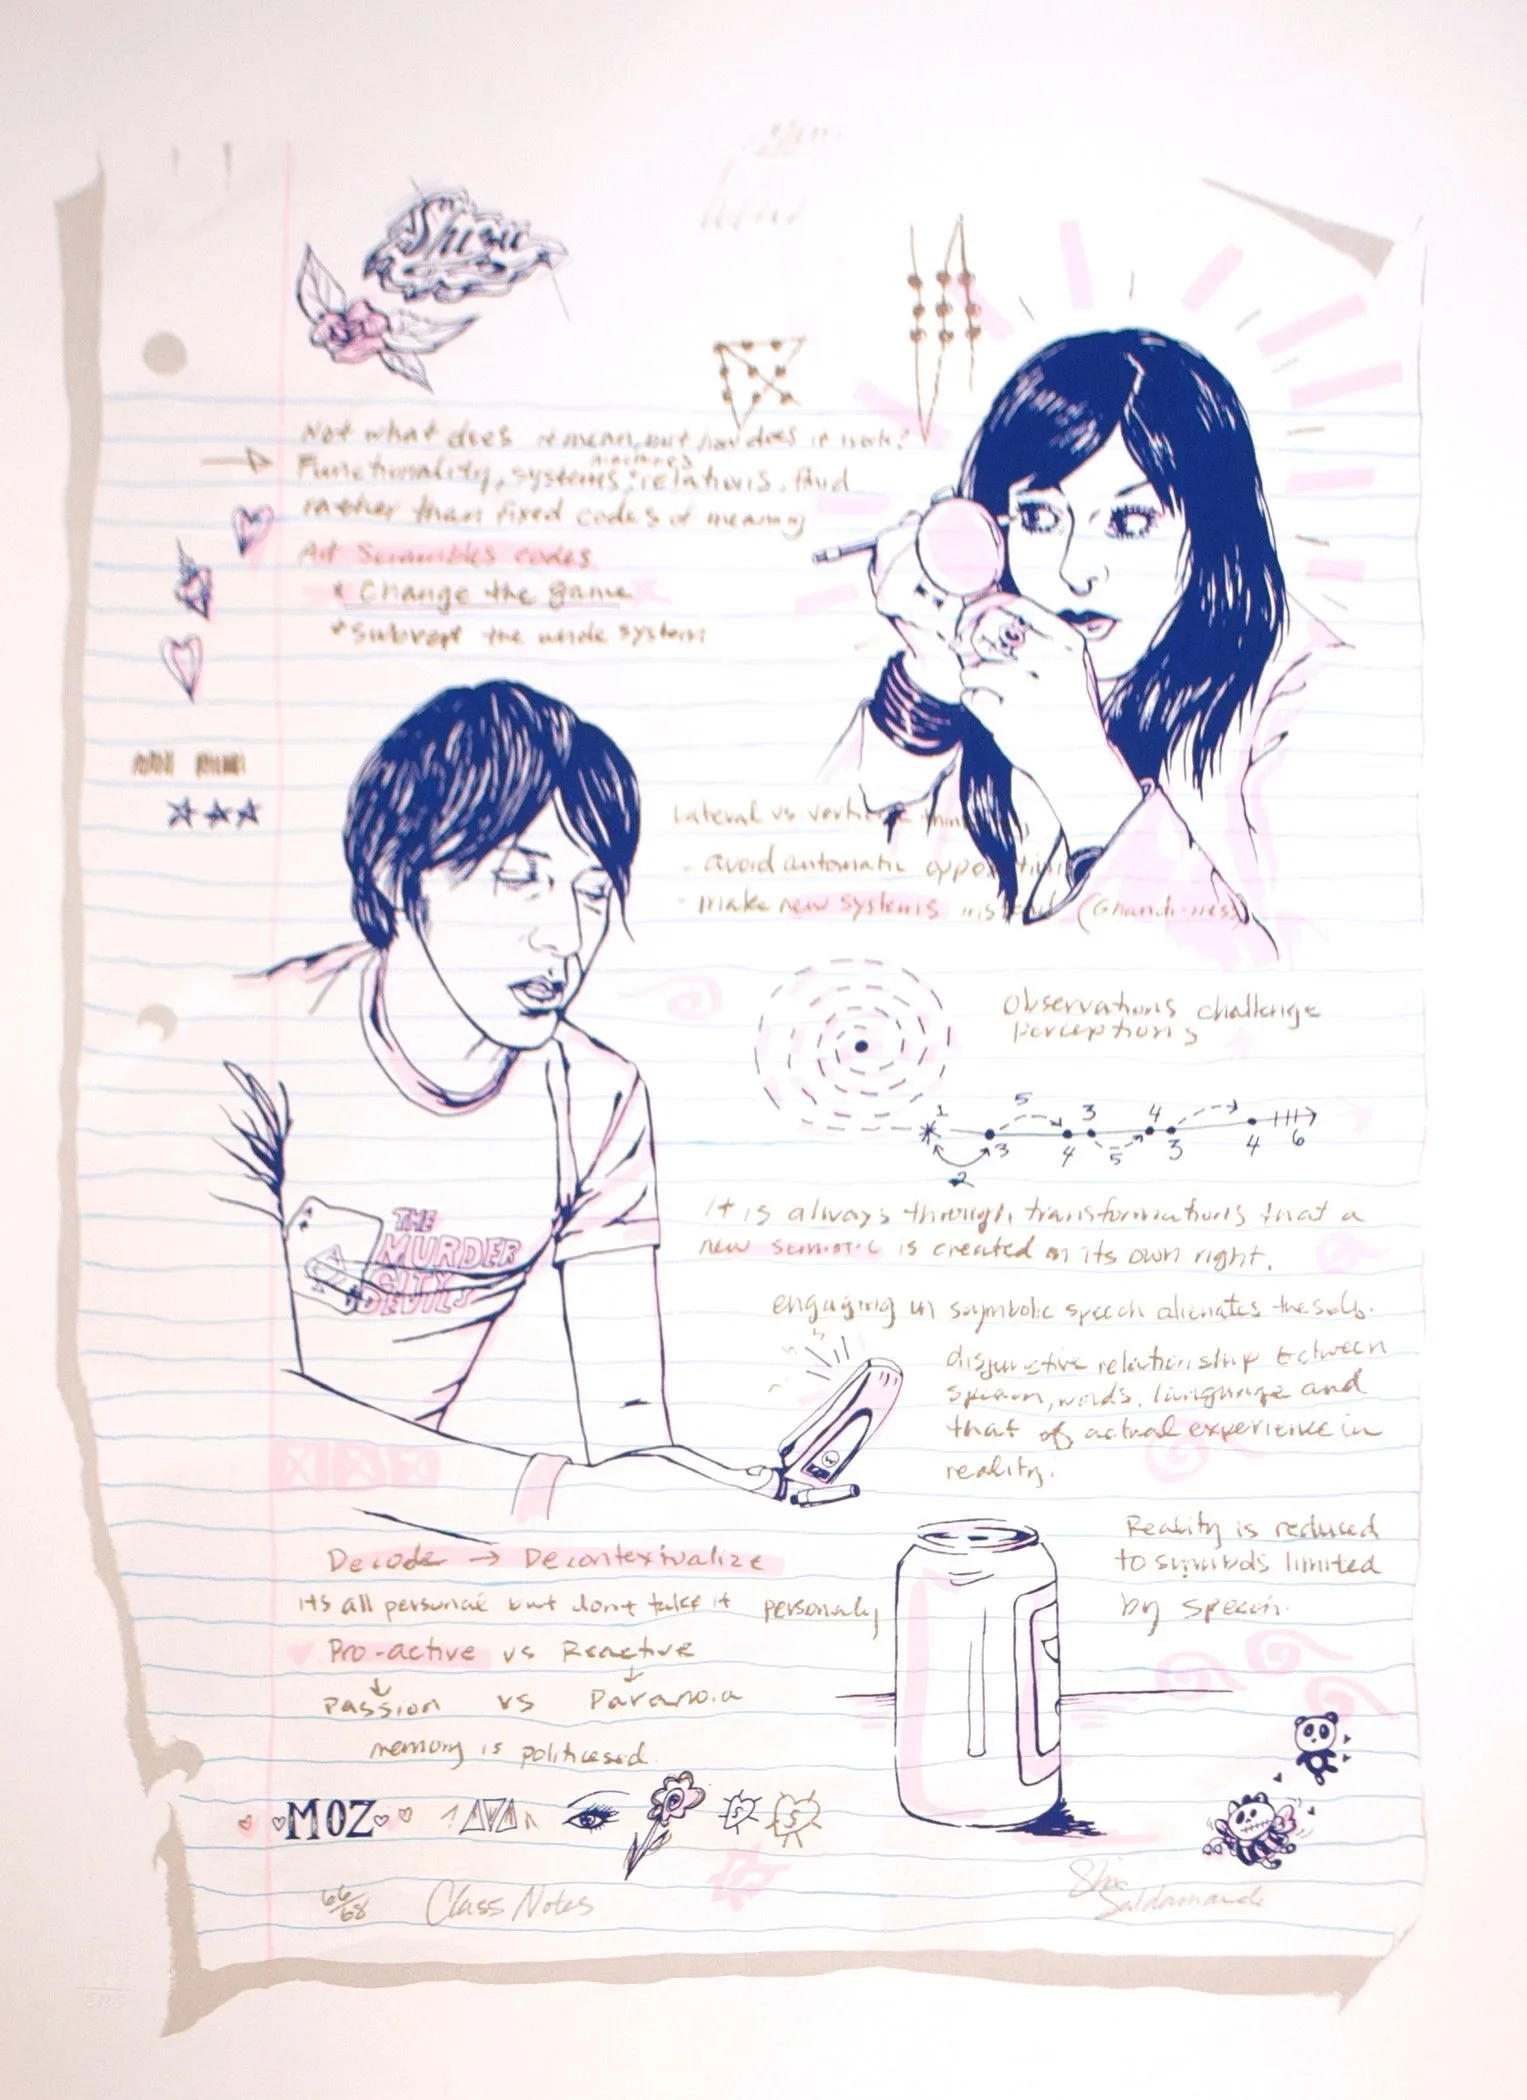 Shizu
Not what does it mean, but how does it work?
machines
Functionality, systems, relations, fluid
rather than fixed codes of meaning
Art Scrambles codes
* Change the game
* Subvert the whole system
Lateral vs vertical
- avoid automatic
- make new systems instead (Ghandi-ness)
observations challenge
perceptions
1 5 3 4
2 3 4 5 3 4 6
It is always through transformations that a
new semiotic is created in its own right.
THE
MURDER
CITY
DEVILS
engaging in symbolic speech alienates the self.
disjunctive relationship between
speech, words, language and
that of actual experience in
reality.
Reality is reduced
to symbols limited
by speech.
Decoder → Decontextualize
its all personal but dont take it personally
Pro-active vs Reactive
Passion vs Paranoia
memory is politicised.
MOZ
S S
66/68 Class Notes
Shizu
Saldamando